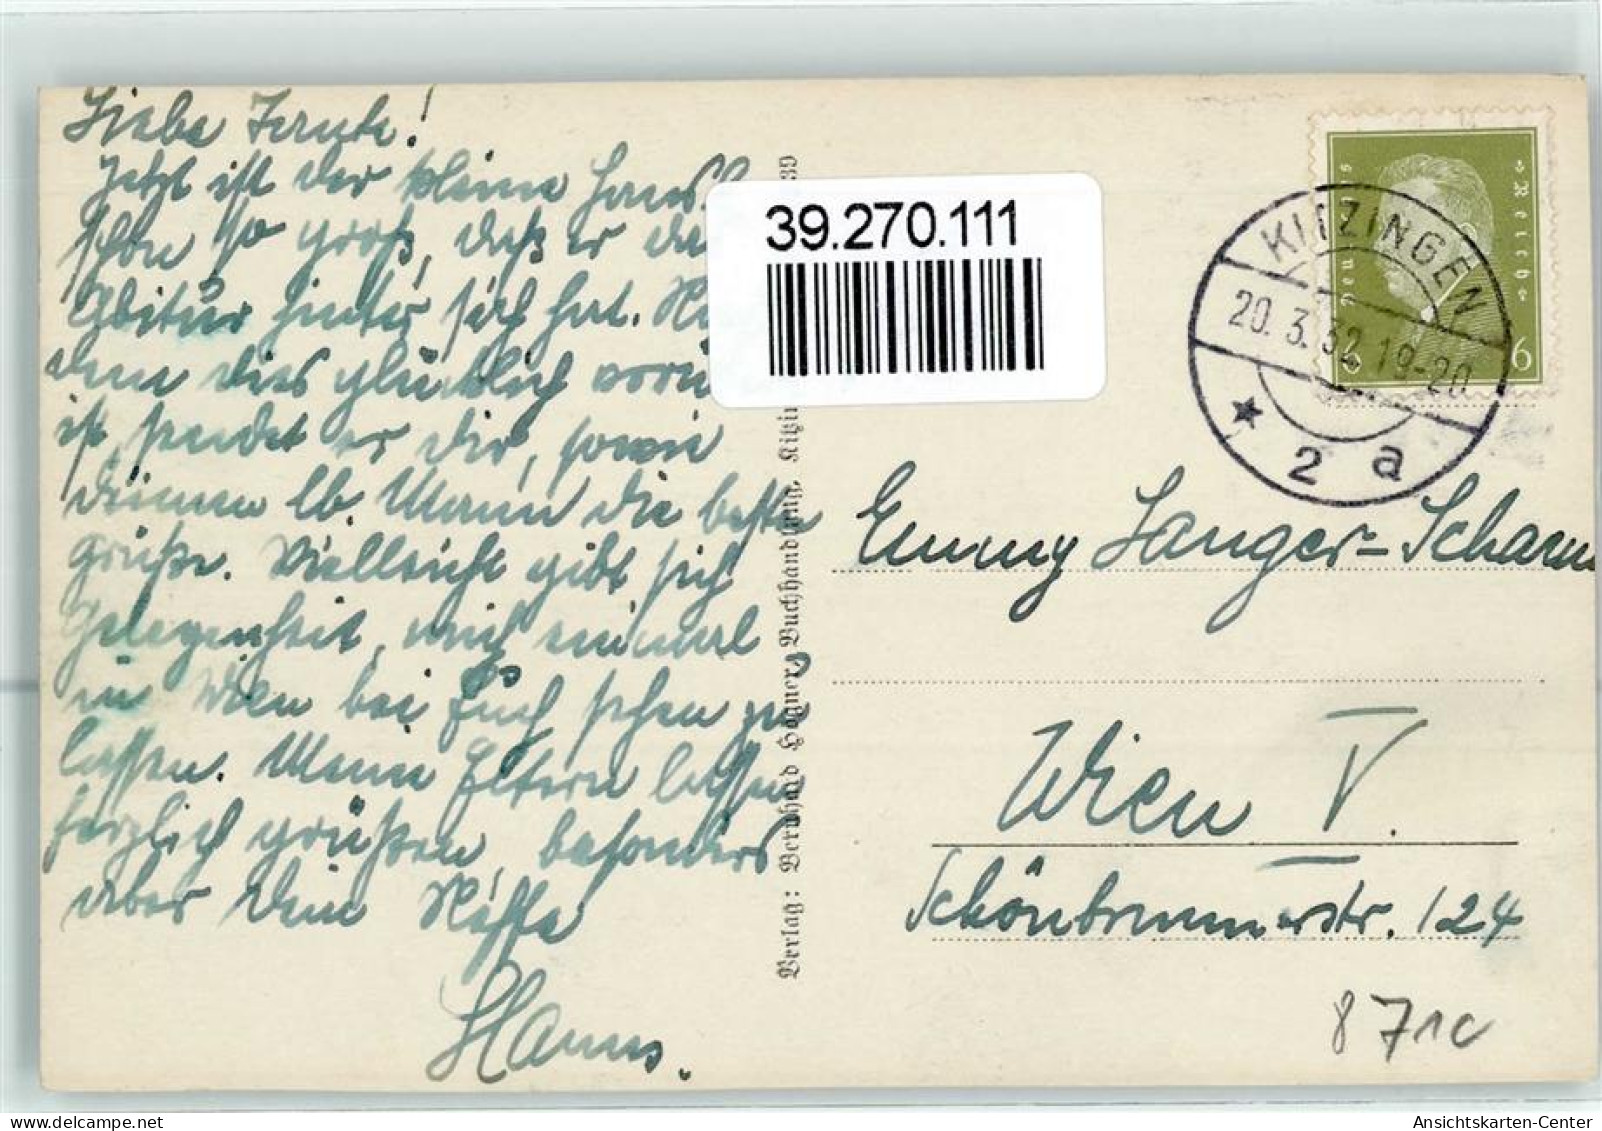 Liebe Tante!
Jetzt ist der kleine Hansl
schon so groß, daß er da
Abitur hinter sich hat.
dem dies glücklich
ist, sendet er Dir, sowie
Deinem lb. Mann die besten
Grüße. Vielleicht gibt sich
Gelegenheit, mich einmal
in Wien bei Euch sehen zu
lassen. Meine Eltern lassen
herzlich grüßen, besonders
aber Dein Neffe
Hanns.
39.270.111
Verlag: Bernhard Högner, Buchhandlung, Kitzin
39
Deutsches Reich
6 6
KITZINGEN
20. 3. 32. 19-20
* 2 a
Emmy Langer-Scham
Wien V.
Schönbrunnerstr. 124
8 71c
Ansichtskarten-Center